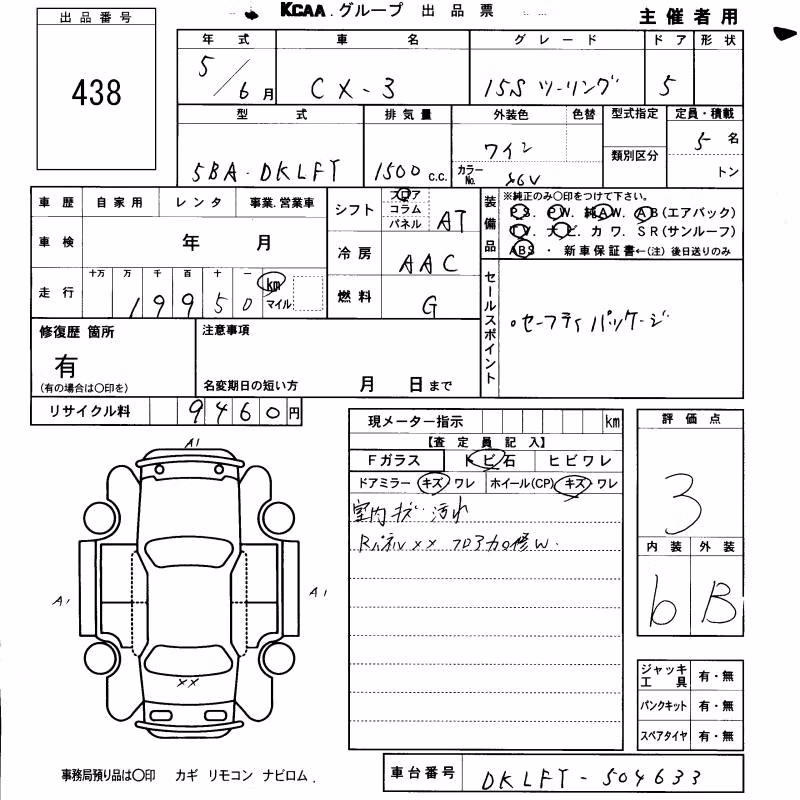 KCAA.グループ 出品票
主催者用
出品番号
438
年式 車名 グレード ドア 形状
5/6月 CX-3 15S ツーリング 5
型式 排気量 外装色 色替 型式指定 定員・積載
5BA-DKLFY 1500 c.c. ワイン 5名
カラーNo. 類別区分 トン
車歴 自家用 レンタ 事業.営業車
車検 年 月
走行 十万 万 千 百 十 一
19950 km マイル
シフト フロア コラム パネル AT
冷房 AAC
燃料 G
装備品 ※純正のみ〇印をつけて下さい。
PS. PW. 純AW. AB(エアバック)
TV. ナビ. カワ. SR(サンルーフ)
ABS・新車保証書←(注)後日送りのみ
セールスポイント
・セーフティパッケージ
修復歴 箇所
有
(有の場合は〇印を)
注意事項
名変期日の短い方 月 日まで
リサイクル料 9460円
現メーター指示 km
【査定員記入】
Fガラス トビ石 ヒビワレ
ドアミラー キズ ワレ ホイール(CP) キズ ワレ
室内キズ・汚れ
Rパネルxx フロア加修W.
評価点
3
内装 外装
b B
A1
A1
A1
xx
ジャッキ工具 有・無
パンクキット 有・無
スペアタイヤ 有・無
事務局預り品は〇印 カギ リモコン ナビロム.
車台番号 DKLFY-504633